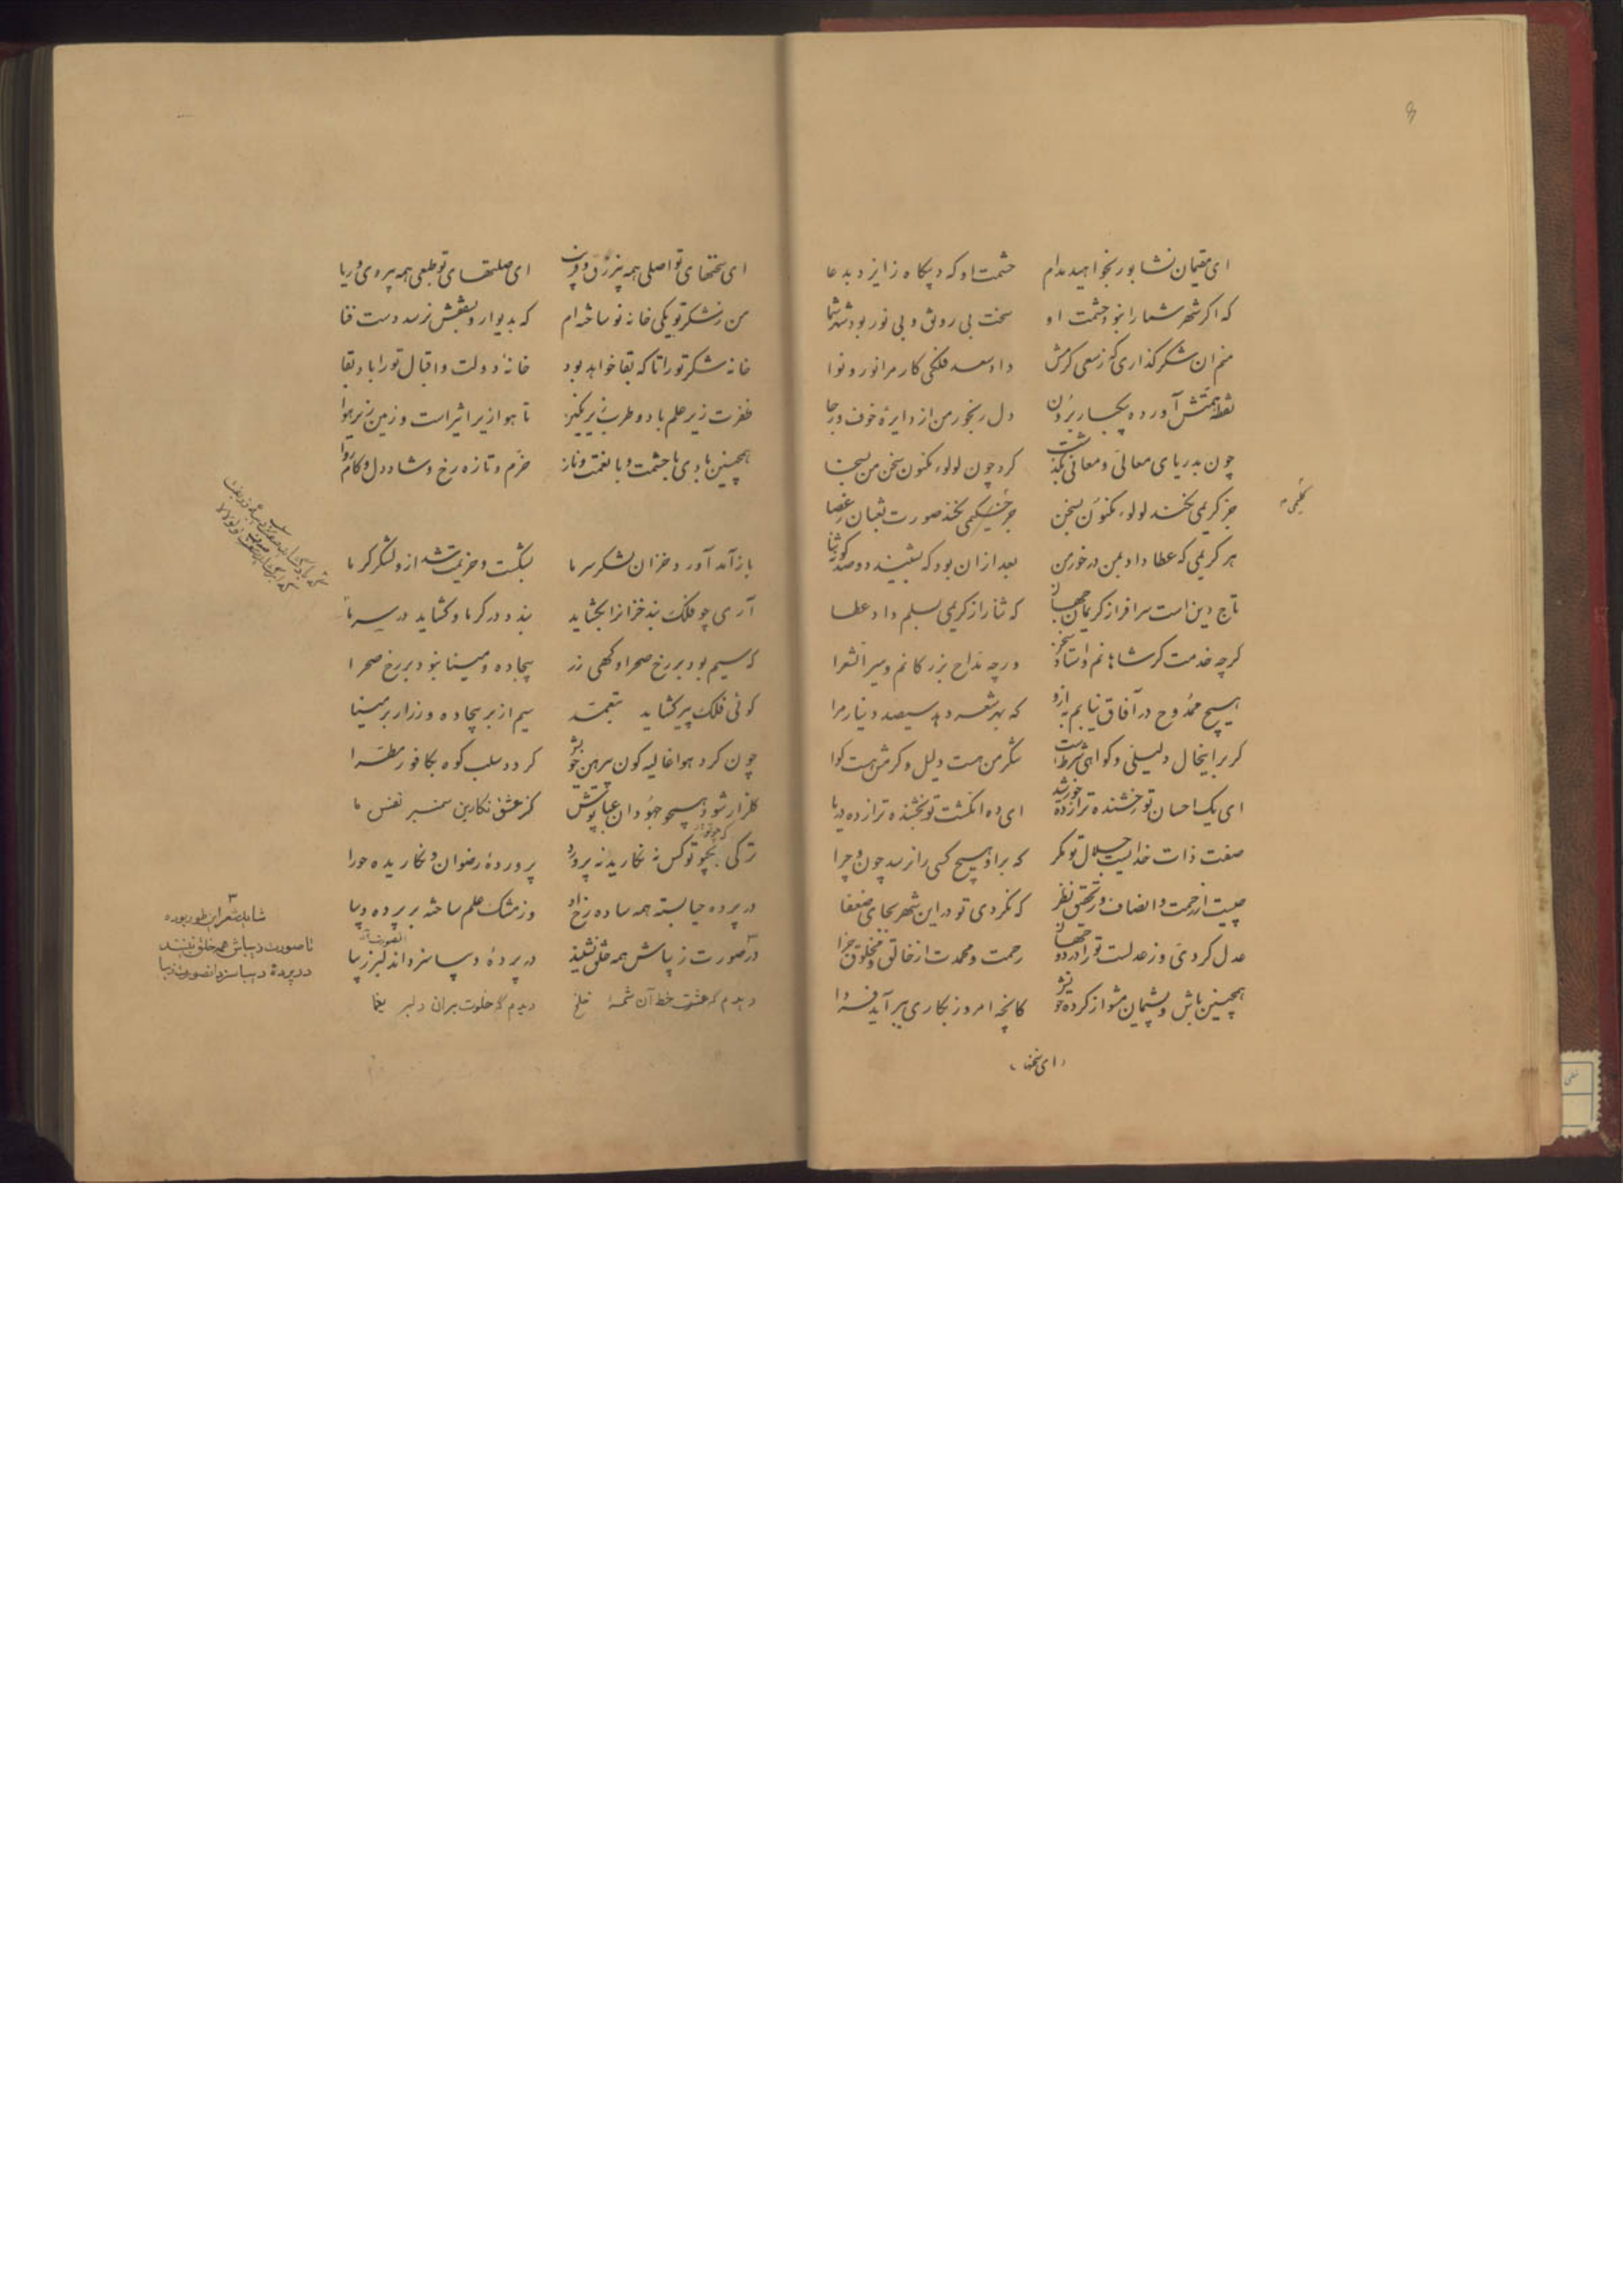 ای مقیمان نشابور بخواهید مدام حشمت او که و پکاه ز ایزد بدعا
که اکر شهر شما را نبود حشمت او سخت بی رونق و بی نور بود شهر شما
منم ان شکر گذاری که ز سعی کرمش داد سعد فلکی کار مرا نور و نوا
نقطه همتش آورده بیکبار برون دل رنجور من از دایرهٔ خوف و رجا
چون بدریای معالی و معانی بگذشت کرد چون لولوء مکنون سخن من بسخا
جز کریمی نکند لولوء مکنون ز سخن جز کلیمی نکند صورت ثعبان ز عصا
کلیمی
هر کریمی که عطا داد بمن در خور من بعد از ان بود که بشنید دو صد کونه ثنا
تاج دین است سرافراز کریمان جهان که ثنا را ز کریمی بسلم داد عطا
کرچه خدمت کر شاهانم و استاد سخن ورچه مداح بزرکانم و میر الشعرا
هیچ ممدوح در آفاق نیابم به ازو که بهر شعر دهد سیصد دینار مرا
کر بر اینحال دلیلی و کواهی شرطست شکر من هست دلیل و کرمش هست کوا
ای یک احسان تو رخشنده تر از ده خورشید ای ده انکشت تو بخشنده تر از ده دریا
صفت ذات خدایست جلال تو مکر که بر او هیچ کسی را نرسد چون و چرا
چیست از رحمت و انصاف و ز تحقیق نظر که نکردی تو در این شهر بجای ضعفا
عدل کردی و ز عدلست تو را در دو جهان رحمت و محمدت از خالق و مخلوق جزا
همچنین باش و پشیمان مشو از کرده خویش کانچه امروز بکاری ببر آید فردا
ای سخنها
ای سخنهای تو اصلی همه بی زرق و فریب ای صلتهای تو طبعی همه بی روی و ریا
من ز شکر تو یکی خانه نو ساخته ام که بدیوار و بسقفش نرسد دست فنا
خانه شکر تو را تا که بقا خواهد بود خانهٔ دولت و اقبال تو را باد بقا
ظفرت زیر علم باد و طرب زیر نکین تا هوا زیر اثیر است و زمین زیر هوا
همچنین بادی با حشمت و با نعمت و ناز خرم و تازه رخ و شاد دل و کام روا
باز آمد آورد خزان لشکر سرما بشکست و هزیمت شد از و لشکر کرما
آری چو فلک بند خزانرا بکشاید بندد در کرما و کشاید در سرما
که سیم بود بر رخ صحرا و کهی زر بیجاده و مینا نبود بر رخ صحرا
کوئی فلک پیر کشاید بتعمد سیم از بر بیجاده و زر از بر مینا
چون کرد هوا غالیه کون پیرهن خویش کردد سلب کوه بکافور مطرا
کلزار شود همچو جهودان عباپوش کز عشق نکارین سمنبر نفس ما
ترکی که چو تو کس نه نکارید نه پرورد پروردهٔ رضوان و نکاریده حورا
در پرده حیا بسته همه ساده زنخ داد وز مشک علم ساخته بر پرده دیبا
در صورت زیباش همه خلق نشینند در پردهٔ دیبا سزد اند لبر زیبا
انصورت
۳
شاید شعر این طور بوده
تا صورت دیباش همه خلق نبینند
در پردهٔ دیبا سزد انصورت زیبا
دیدم که عشق خط آن شمسهٔ خلخ دیدم که خلوت بران دلبر یغما